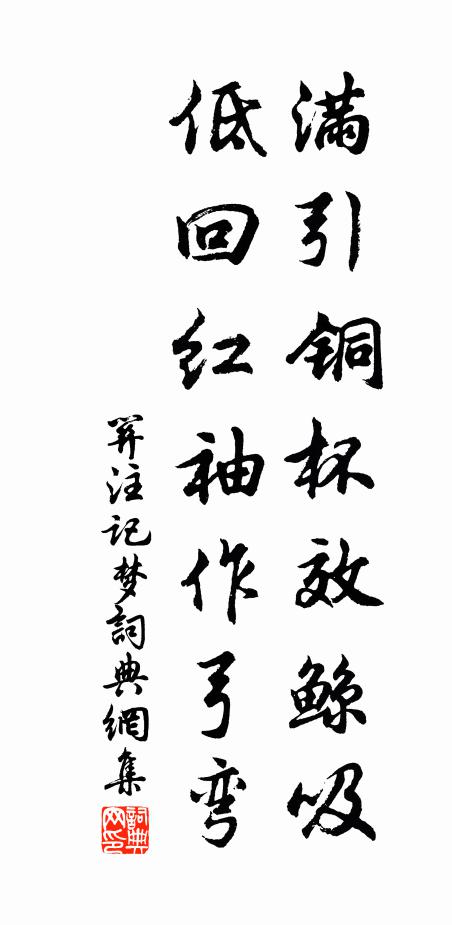 满引铜杯效鲸吸
低回红袖作弓弯
羿注记梦词典网集
词典网印